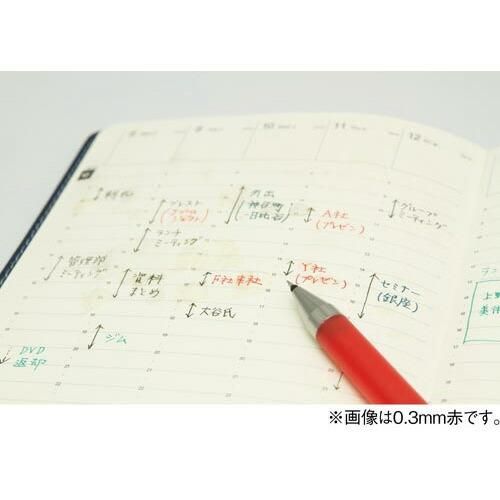 8
9
10
11
12
朝礼
ブレスト
外出
神保町
日比谷
A社
(プレゼン)
グループ
ミーティング
ランチ
ミーティング
管理部
ミーティング
資料
まとめ
F社来社
Y社
(プレゼン)
セミナー
(銀座)
大谷氏
ジム
DVD
返却
上野
※画像は0.3mm赤です。